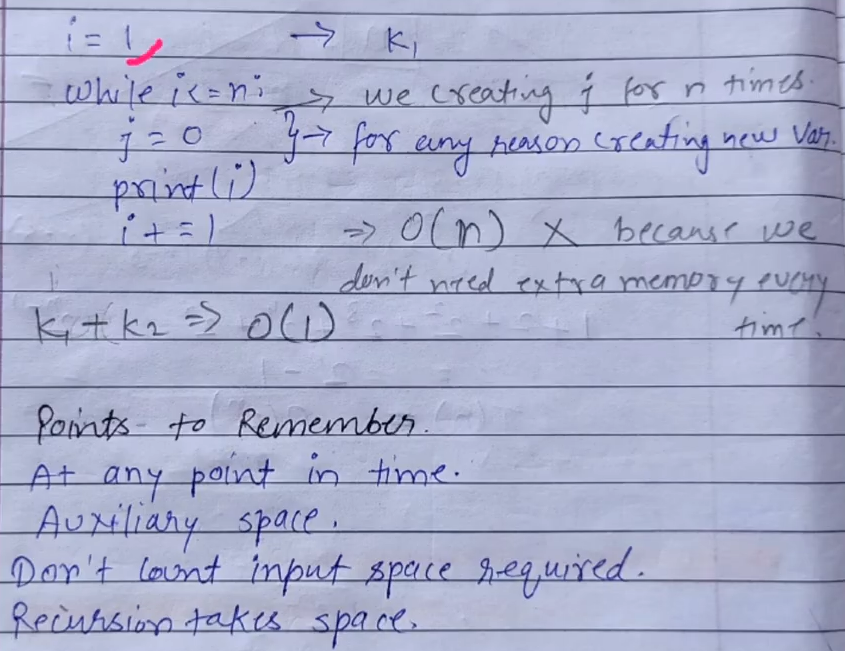 i = 1 → K1
while i<=n: → we creating j for n times.
j = 0 } → for any reason creating new var.
print(i)
i += 1 ⇒ O(n) X because we
don't need extra memory every
K1 + K2 ⇒ O(1) time.
Points to Remember.
At any point in time.
Auxiliary space.
Don't count input space required.
Recursion takes space.